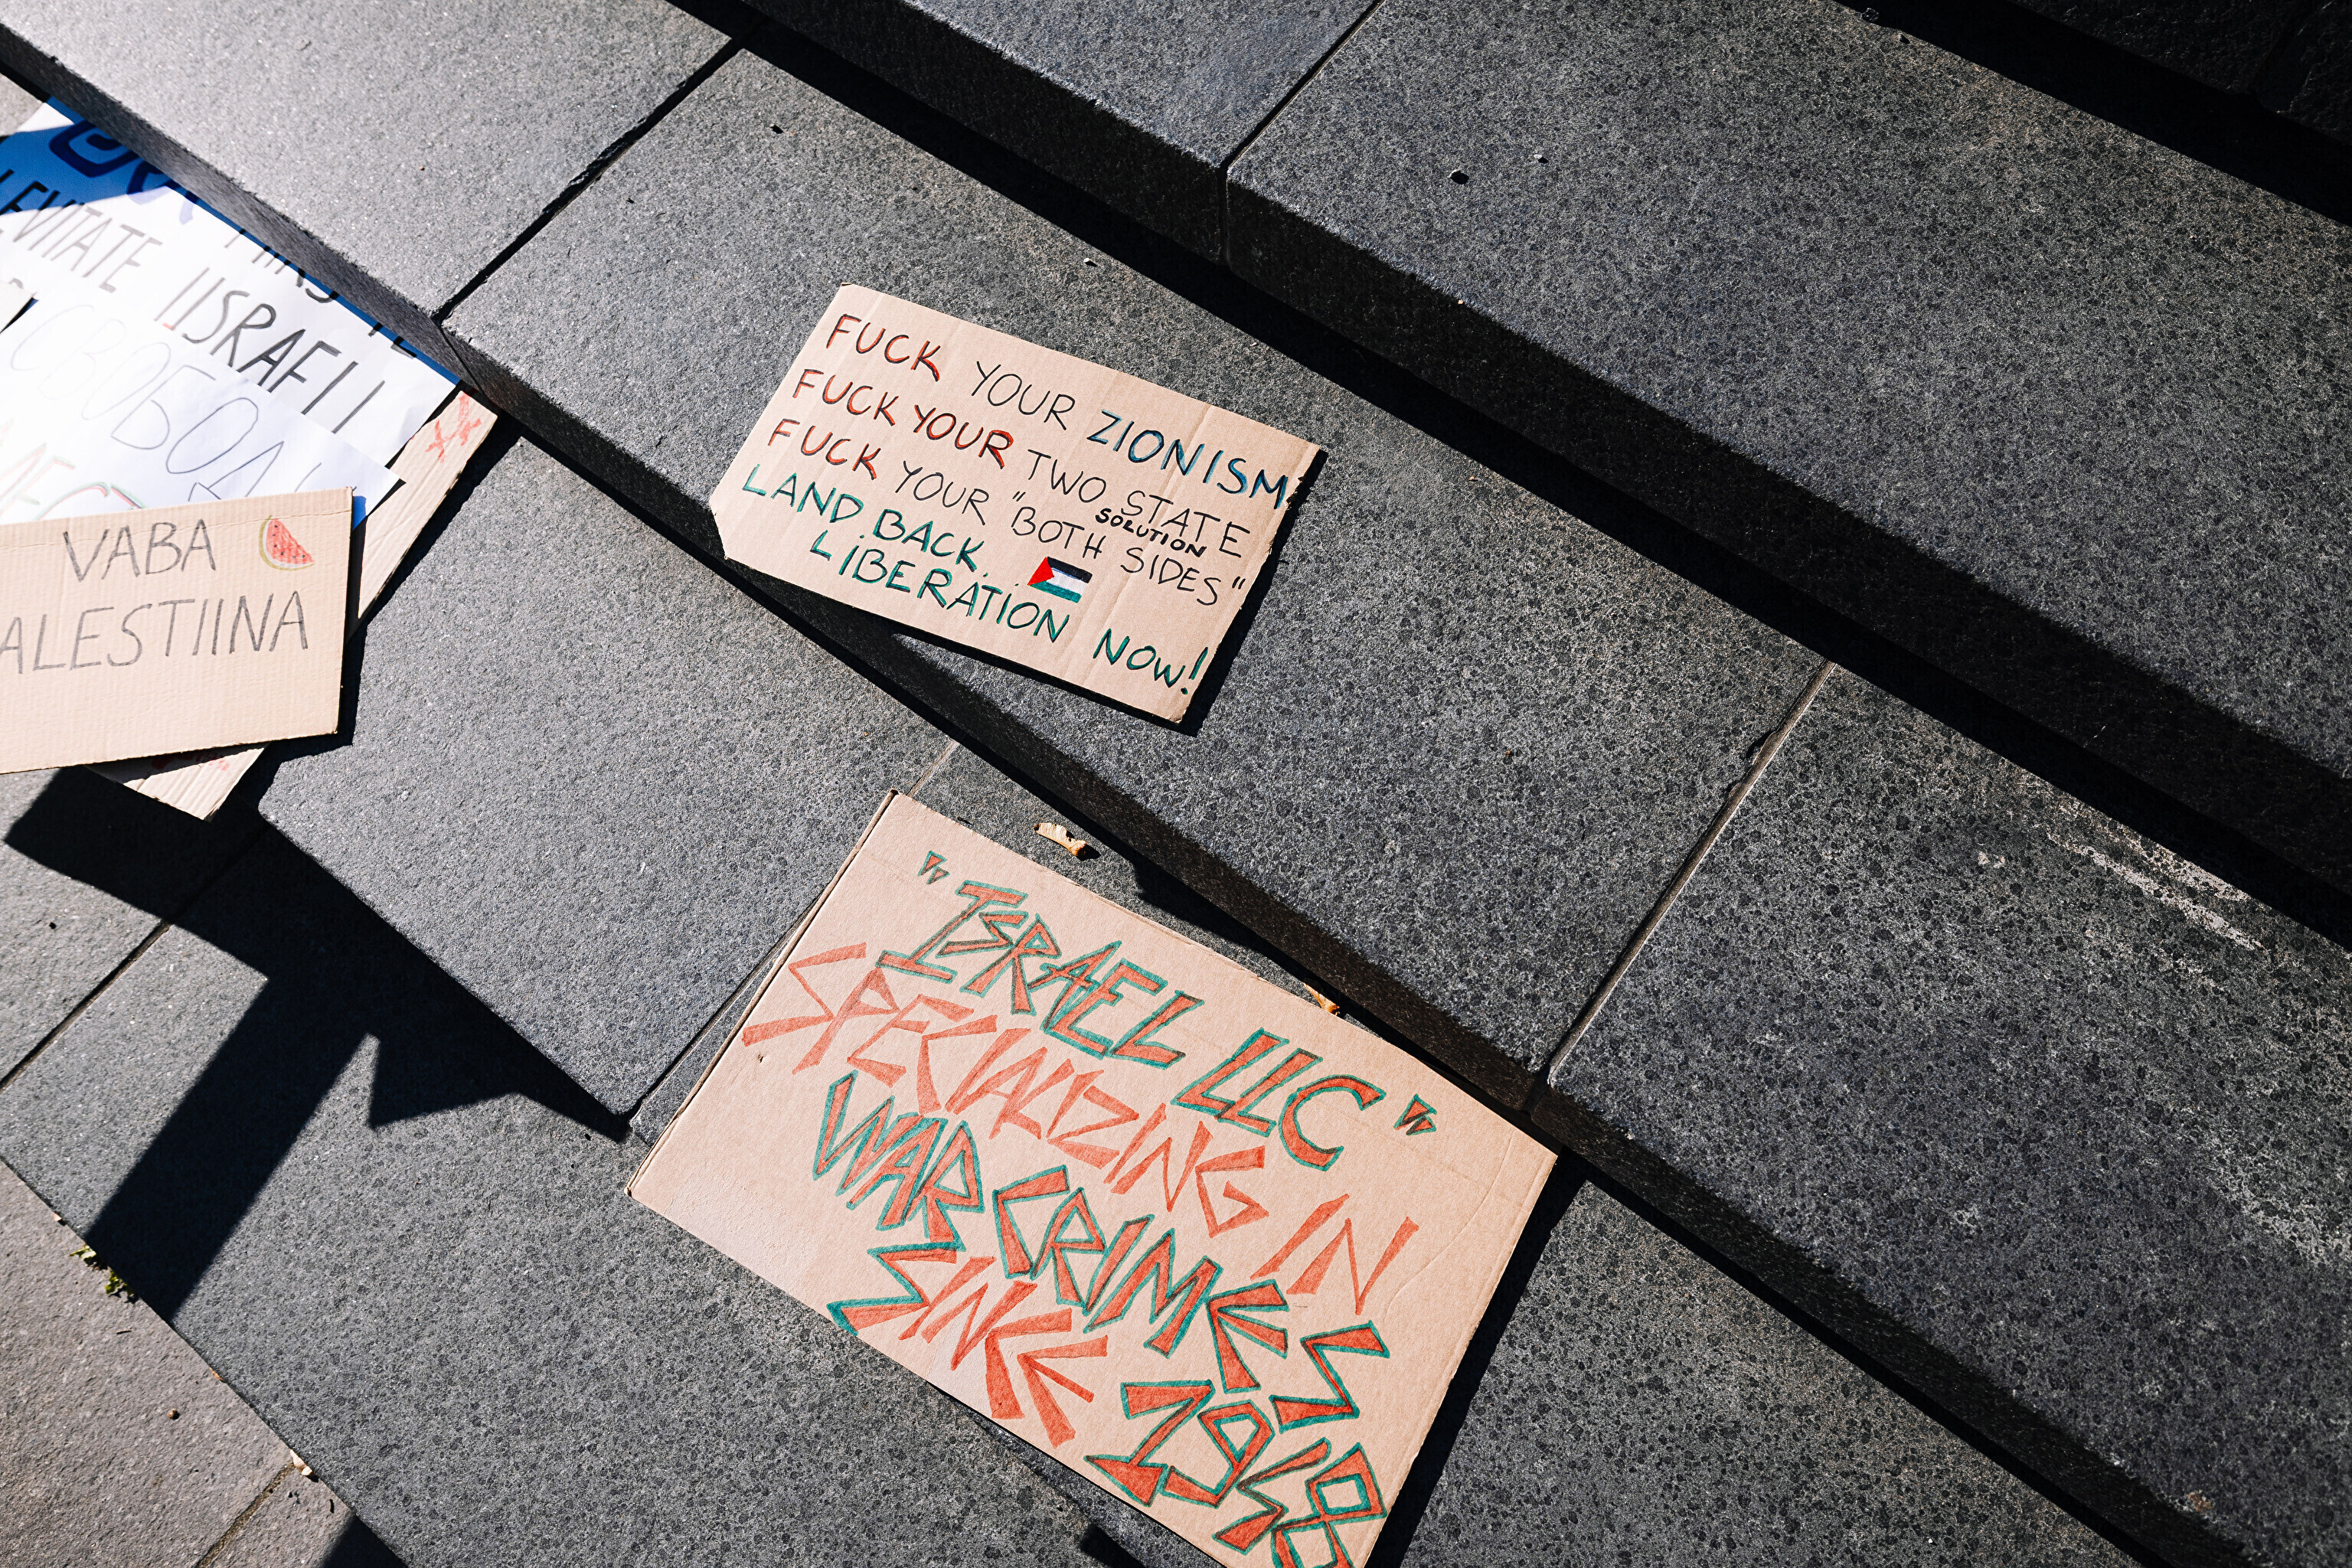 LEVITATE IISRAELI
VABA
ALESTIINA
FUCK YOUR ZIONISM
FUCK YOUR TWO STATE
SOLUTION
FUCK YOUR "BOTH SIDES"
LAND BACK
LIBERATION NOW!
"ISRAEL LLC"
SPECIALIZING IN
WAR CRIMES
SINCE 1948